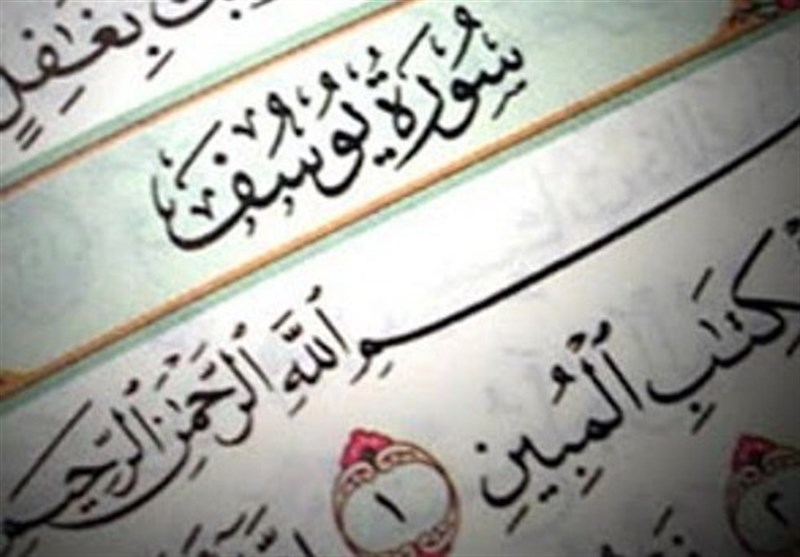 بِغَٰفِلٍ
سُورَةُ يُوسُفَ
بِسْمِ ٱللَّهِ ٱلرَّحْمَٰنِ ٱلرَّحِيمِ
ٱلْكِتَٰبِ ٱلْمُبِينِ ١
٢